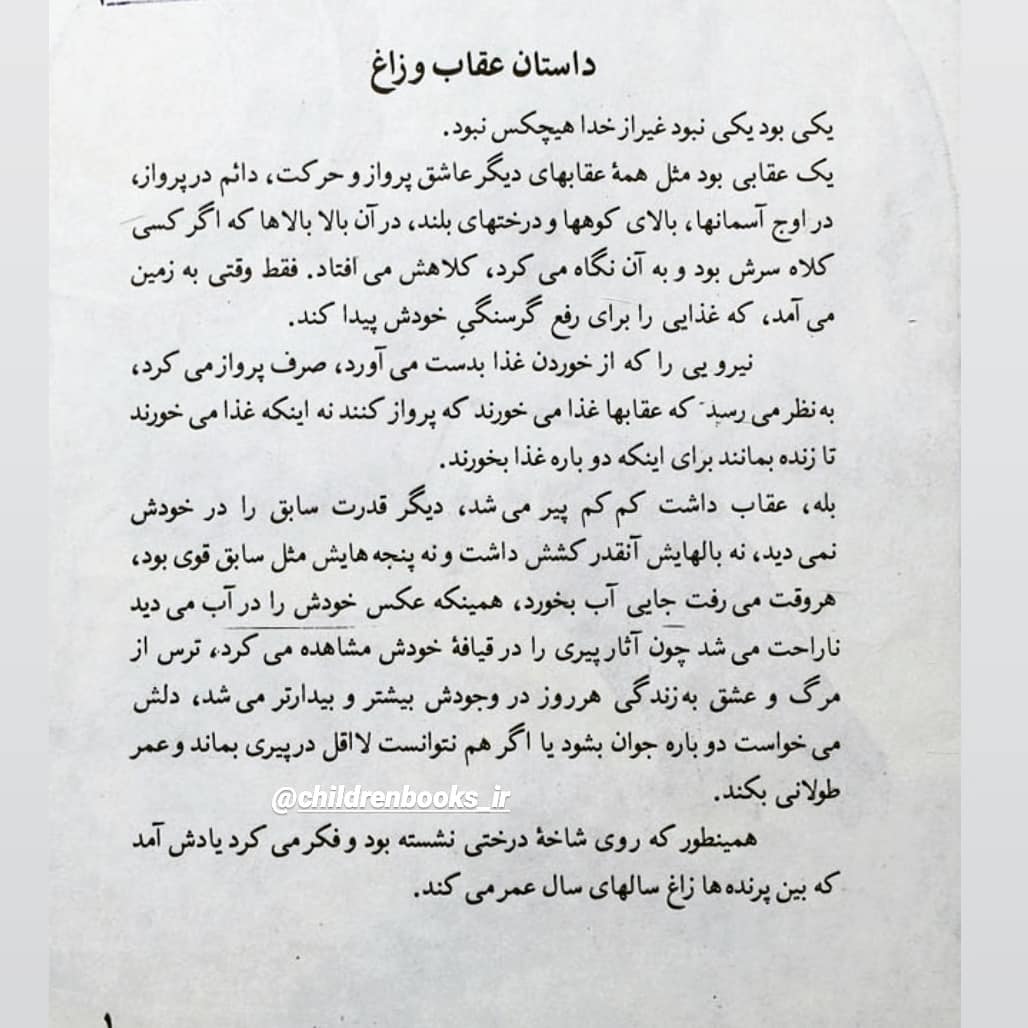 داستان عقاب و زاغ
یکی بود یکی نبود غیر از خدا هیچکس نبود.
یک عقابی بود مثل همهٔ عقابهای دیگر عاشق پرواز و حرکت، دائم در پرواز،
در اوج آسمانها، بالای کوهها و درختهای بلند، در آن بالا بالاها که اگر کسی
کلاه سرش بود و به آن نگاه می کرد، کلاهش می افتاد. فقط وقتی به زمین
می آمد، که غذایی را برای رفع گرسنگی خودش پیدا کند.
نیرو یی را که از خوردن غذا بدست می آورد، صرف پرواز می کرد،
به نظر می رسید که عقابها غذا می خورند که پرواز کنند نه اینکه غذا می خورند
تا زنده بمانند برای اینکه دو باره غذا بخورند.
بله، عقاب داشت کم کم پیر می شد، دیگر قدرت سابق را در خودش
نمی دید، نه بالهایش آنقدر کشش داشت و نه پنجه هایش مثل سابق قوی بود،
هر وقت می رفت جایی آب بخورد، همینکه عکس خودش را در آب می دید
ناراحت می شد چون آثار پیری را در قیافهٔ خودش مشاهده می کرد، ترس از
مرگ و عشق به زندگی هر روز در وجودش بیشتر و بیدارتر می شد، دلش
می خواست دو باره جوان بشود یا اگر هم نتوانست لااقل در پیری بماند و عمر
طولانی بکند.
@childrenbooks_ir
همینطور که روی شاخهٔ درختی نشسته بود و فکر می کرد یادش آمد
که بین پرنده ها زاغ سالهای سال عمر می کند.
۱